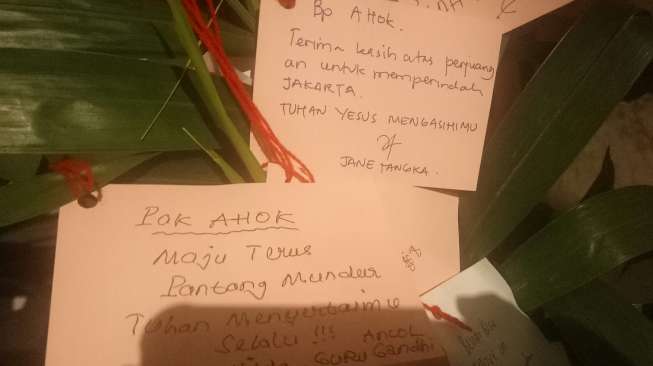 Bp AHOK.
Terima kasih atas perjuang
an untuk memperindah
JAKARTA.
TUHAN YESUS MENGASIHIMU
JANE TANGKA.
Pak AHOK
Maju Terus
Pantang Mundur
Tuhan Menyertaimu
Selalu !!! Ancol
GURU Gandhi